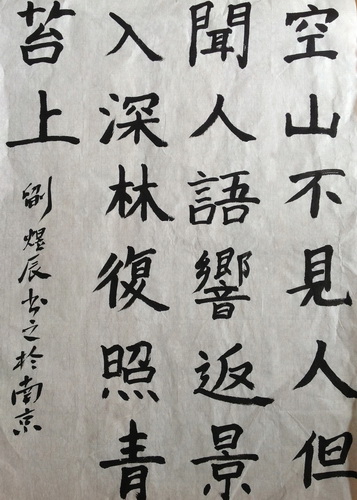 空山不見人但
聞人語響返景
入深林復照青
苔上
劉煜辰书之於南京